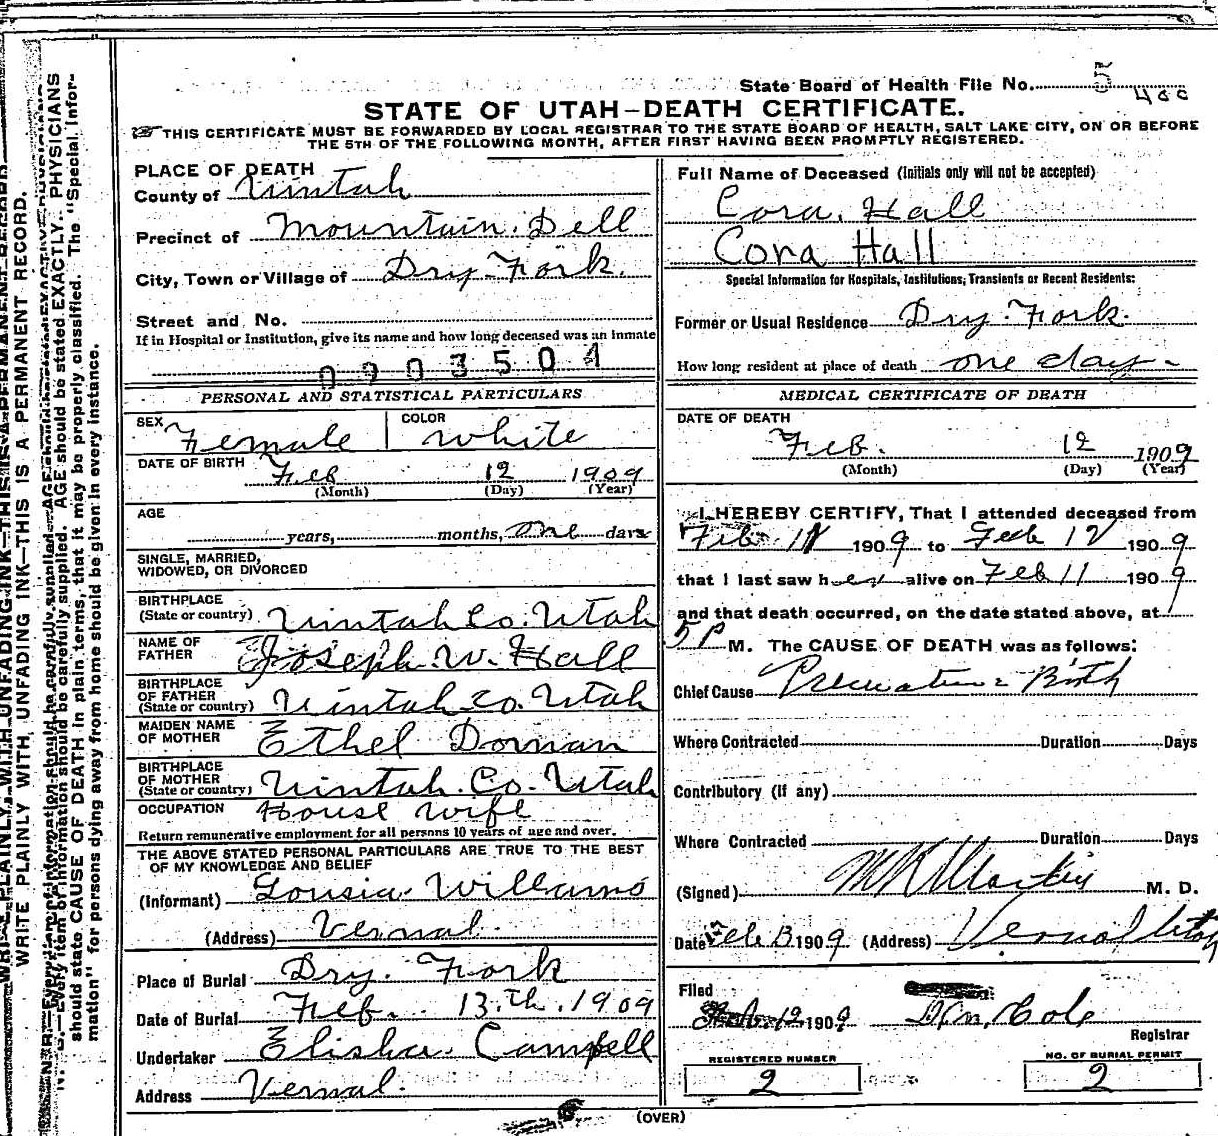 State Board of Health File No. 5
400
STATE OF UTAH—DEATH CERTIFICATE.
THIS CERTIFICATE MUST BE FORWARDED BY LOCAL REGISTRAR TO THE STATE BOARD OF HEALTH, SALT LAKE CITY, ON OR BEFORE
THE 5TH OF THE FOLLOWING MONTH, AFTER FIRST HAVING BEEN PROMPTLY REGISTERED.
PLACE OF DEATH
County of Uintah
Precinct of Mountain Dell
City, Town or Village of Dry Fork.
Street and No.
If in Hospital or Institution, give its name and how long deceased was an inmate
0903504
PERSONAL AND STATISTICAL PARTICULARS
SEX Female COLOR White
DATE OF BIRTH Feb 12 1909
(Month) (Day) (Year)
AGE
years, months, one days
SINGLE, MARRIED,
WIDOWED, OR DIVORCED
BIRTHPLACE
(State or country) Uintah Co. Utah
NAME OF
FATHER Joseph W. Hall
BIRTHPLACE
OF FATHER
(State or country) Uintah Co. Utah
MAIDEN NAME
OF MOTHER Ethel Dornan
BIRTHPLACE
OF MOTHER
(State or country) Uintah. Co. Utah
OCCUPATION House Wife
Return remunerative employment for all persons 10 years of age and over.
THE ABOVE STATED PERSONAL PARTICULARS ARE TRUE TO THE BEST
OF MY KNOWLEDGE AND BELIEF
(Informant) Lousia Williams
(Address) Vernal.
Place of Burial Dry. Fork
Date of Burial Feb. 13.th. 1909
Undertaker Elisha Campbell
Address Vernal.
Full Name of Deceased (Initials only will not be accepted)
Cora. Hall
Cora Hall
Special Information for Hospitals, Institutions, Transients or Recent Residents:
Former or Usual Residence Dry. Fork.
How long resident at place of death one day
MEDICAL CERTIFICATE OF DEATH
DATE OF DEATH
Feb. 12 1909
(Month) (Day) (Year)
I HEREBY CERTIFY, That I attended deceased from
Feb 11 1909 to Feb 12 1909
that I last saw her alive on Feb 11 1909
and that death occurred, on the date stated above, at
5 P M. The CAUSE OF DEATH was as follows:
Chief Cause Premature Birth
Where Contracted Duration Days
Contributory (if any)
Where Contracted Duration Days
(Signed) Martin M. D.
Date Feb 13 1909 (Address) Vernal Utah
Filed
Feb. 12 1909 Cole
Registrar
REGISTERED NUMBER
2
NO. OF BURIAL PERMIT
2
(OVER)
WRITE PLAINLY WITH UNFADING INK—THIS IS A PERMANENT RECORD.
N. B.—Every item of information should be carefully supplied. AGE should be stated EXACTLY. PHYSICIANS
should state CAUSE OF DEATH in plain terms, that it may be properly classified. The "Special Information"
for persons dying away from home should be given in every instance.